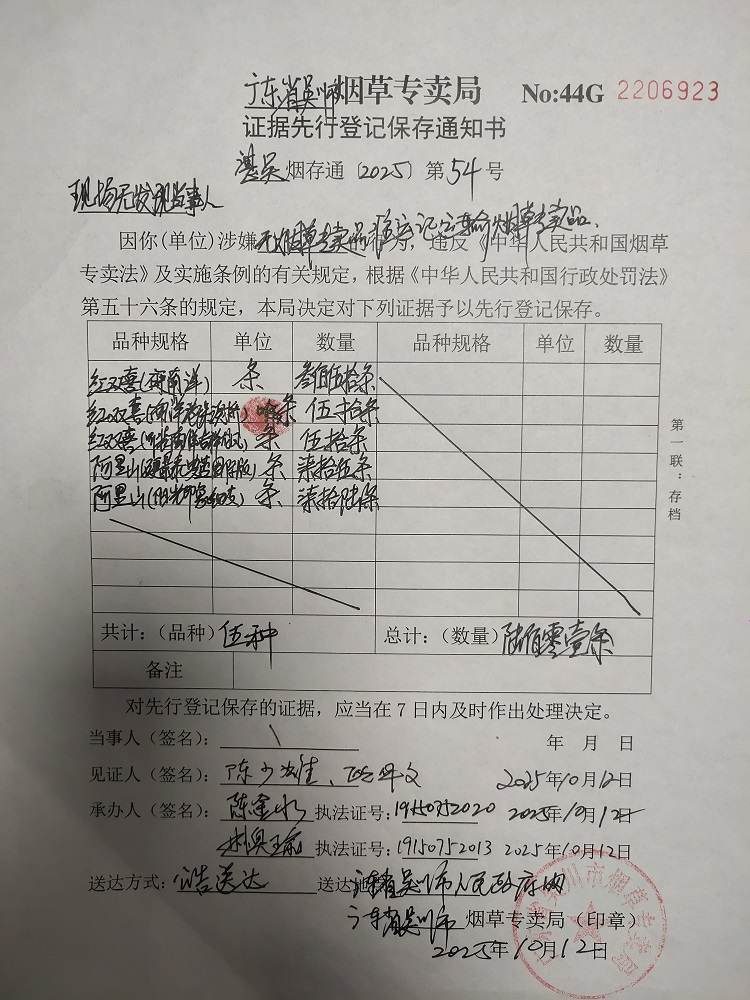 广东省吴川市烟草专卖局 No:44G 2206923
证据先行登记保存通知书
湛吴烟存通〔2025〕第54号
现场无发现当事人
因你(单位)涉嫌无烟草专卖品准运证运输烟草专卖品的行为，违反《中华人民共和国烟草
专卖法》及实施条例的有关规定，根据《中华人民共和国行政处罚法》
第五十六条的规定，本局决定对下列证据予以先行登记保存。
品种规格 单位 数量 品种规格 单位 数量
红双喜(硬南洋) 条 叁佰伍拾条
红双喜(南洋 条 伍拾条
红双喜( 条 伍拾条
阿里山( 条 柒拾伍条
阿里山( 条 柒拾陆条
共计：(品种) 伍种 总计：(数量) 陆佰零壹条
备注
第一联：存档
对先行登记保存的证据，应当在7日内及时作出处理决定。
当事人（签名）： \ 年 月 日
见证人（签名）：陈 2025年10月12日
承办人（签名）：陈 执法证号：19150752020 2025年10月12日
林 执法证号：19150752013 2025年10月12日
送达方式：公告送达 送达地点：广东省吴川市人民政府网
广东省吴川市烟草专卖局（印章）
2025年10月12日